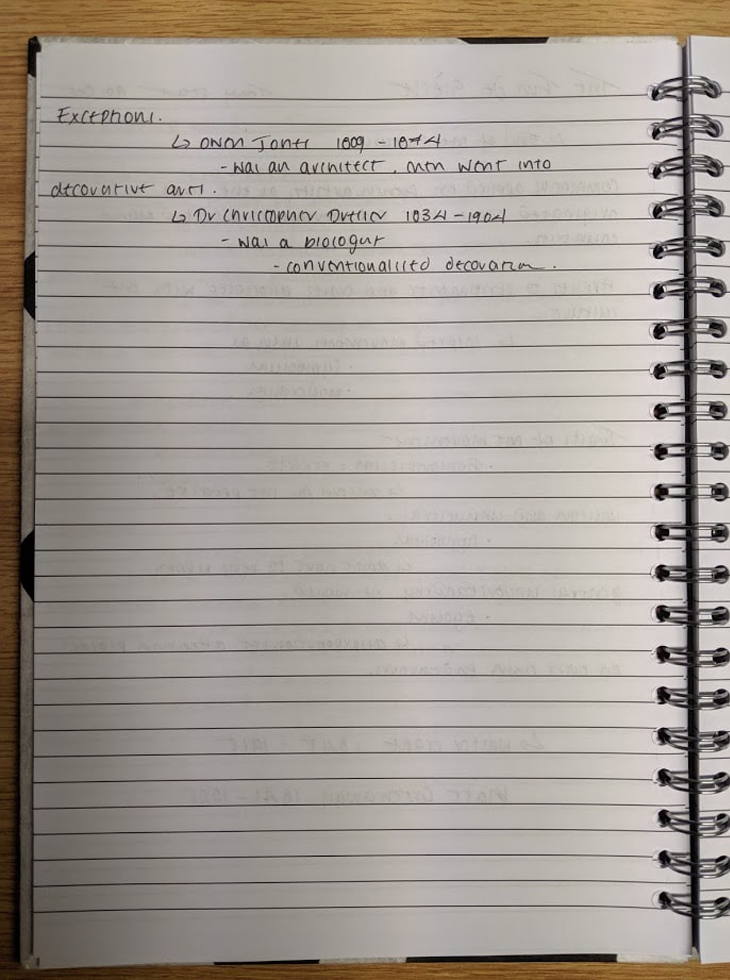 Exceptions.
↳ Owen Jones 1809 - 1874
- was an architect, then went into
decorative arts.
↳ Dr Christopher Dresser 1834 - 1904
- was a biologist
- conventionalised decoration.